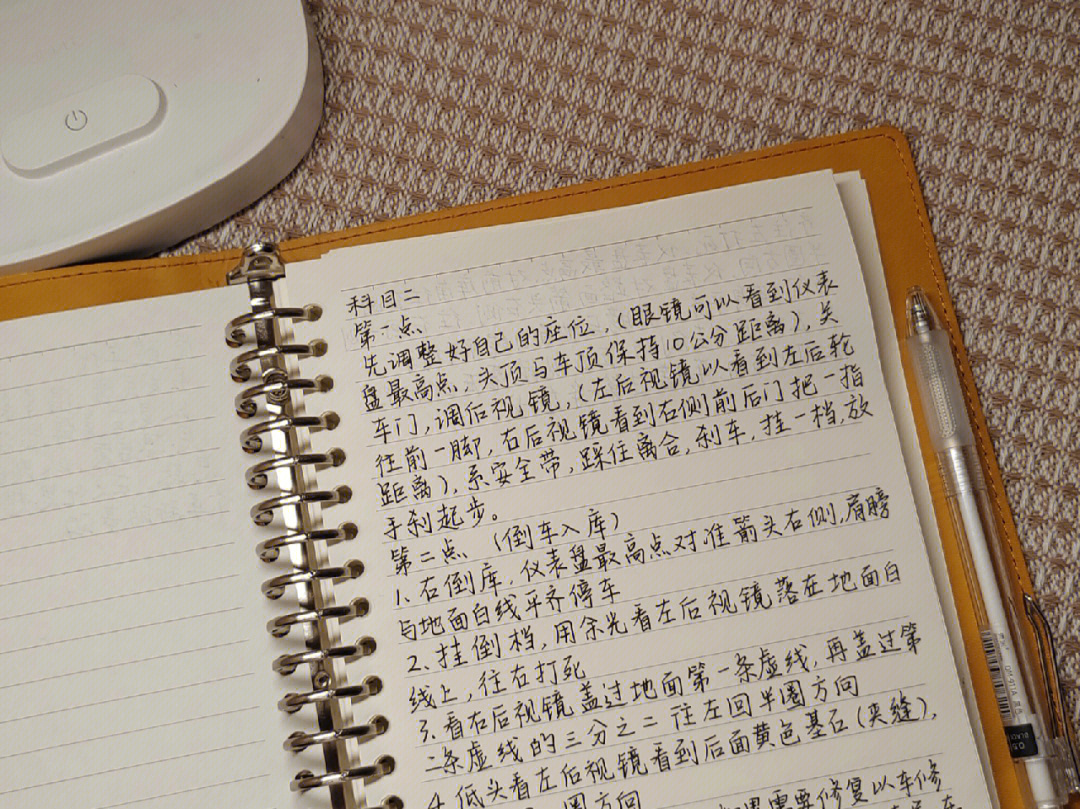 科目二
第一点
先调整好自己的座位,(眼镜可以看到仪表
盘最高点,头顶与车顶保持10公分距离),关
车门,调后视镜,(左后视镜以看到左后轮
往前一脚,右后视镜看到右侧前后门把一指
距离),系安全带,踩住离合,刹车,挂一档,放
手刹起步。
第二点 (倒车入库)
1、右倒库,仪表盘最高点对准箭头右侧,肩膀
与地面白线平齐停车
2、挂倒档,用余光看左后视镜落在地面白
线上,往右打死
3、看右后视镜盖过地面第一条虚线,再盖过第
二条虚线的三分之二往左回半圈方向
4、低头看左后视镜看到后面黄色基石(夹缝),
圈方向
需要修复以车修